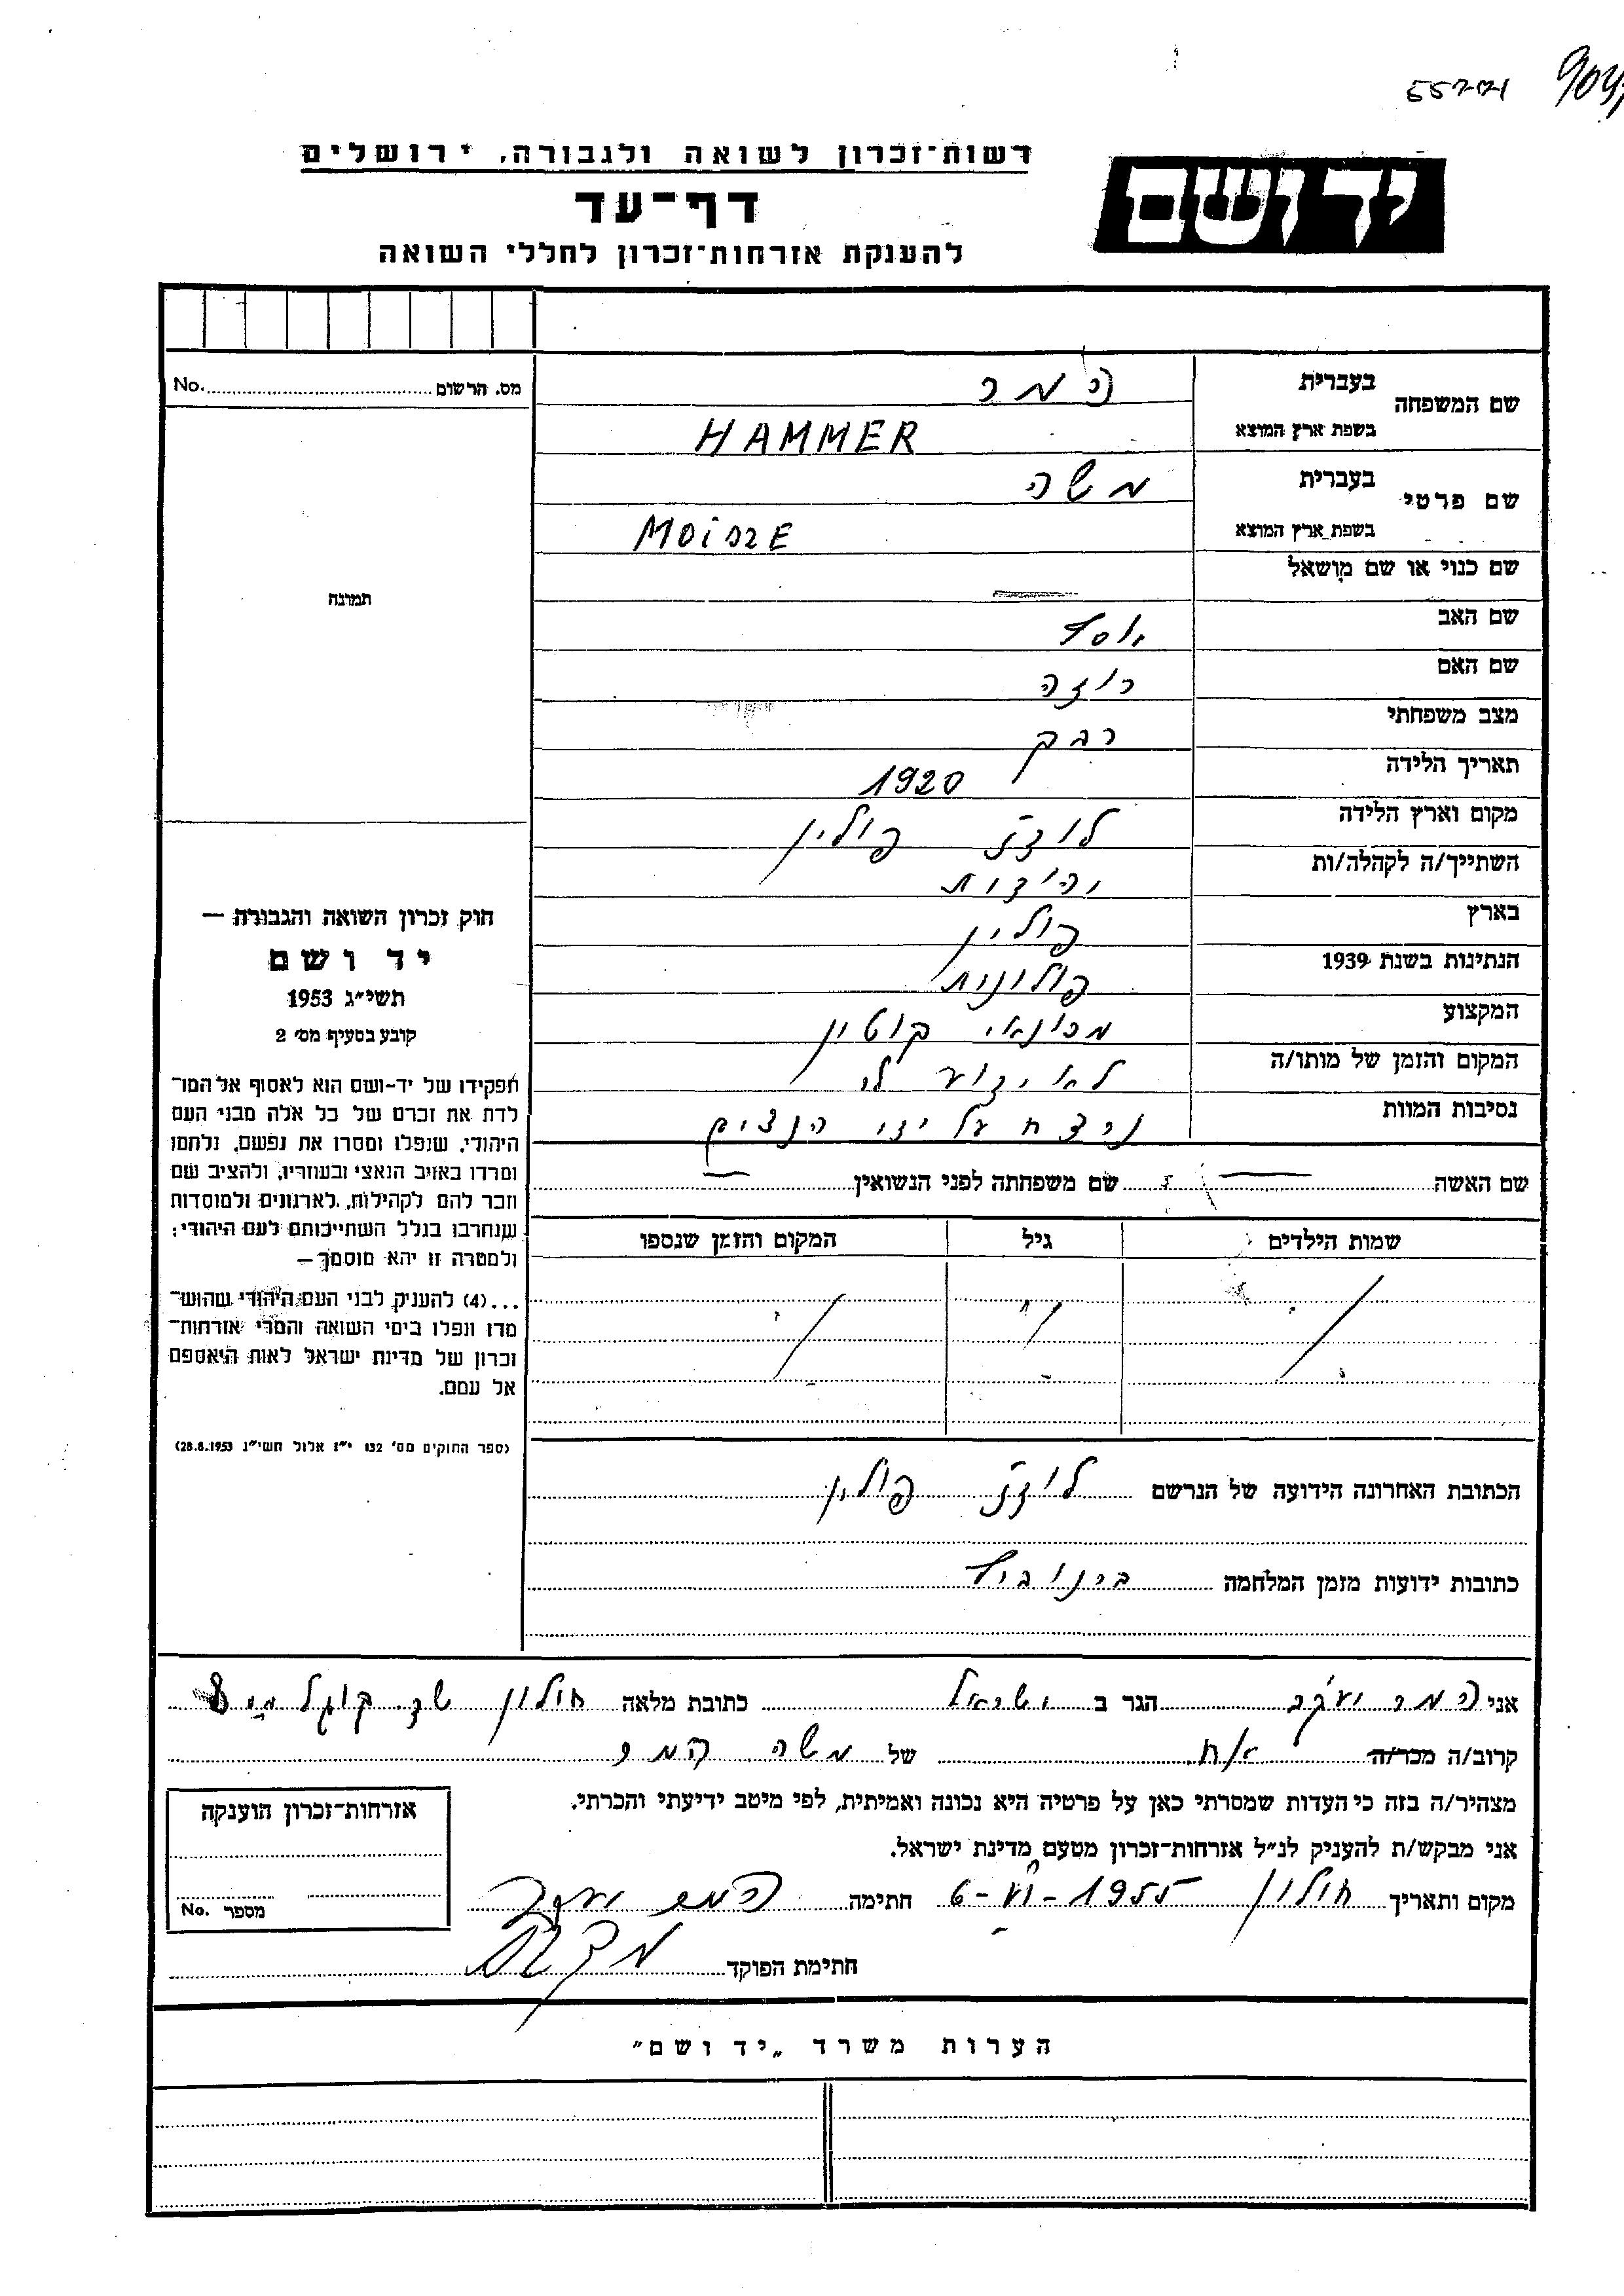 55221
רשות־זכרון לשואה ולגבורה, ירושלים
יד ושם
דף־עד
להענקת אזרחות־זכרון לחללי השואה
שם המשפחה בעברית המר
בשפת ארץ המוצא HAMMER
שם פרטי בעברית משה
בשפת ארץ המוצא
שם כנוי או שם מושאל
שם האב יוסף
שם האם רוזה
מצב משפחתי רבק
תאריך הלידה 1920
מקום וארץ הלידה לודז פולין
השתייך/ה לקהלה/ות יהודית
בארץ פולין
הנתינות בשנת 1939 פולונית
המקצוע מכונאי קוטון
המקום והזמן של מותו/ה לא ידוע לי
נסיבות המוות נרצח על ידי הנצים
שם האשה שם משפחתה לפני הנשואין
שמות הילדים גיל המקום והזמן שנספו
הכתובת האחרונה הידועה של הנרשם לודז פולין
כתובות ידועות מזמן המלחמה
מס. הרשום No.
תמונה
חוק זכרון השואה והגבורה —
יד ושם
תשי״ג 1953
קובע בסעיף מס׳ 2
תפקידו של יד-ושם הוא לאסוף אל המו־
לדת את זכרם של כל אלה מבני העם
היהודי, שנפלו ומסרו את נפשם, נלחמו
ומרדו באויב הנאצי ובעוזריו, ולהציב שם
וזכר להם לקהילות, לארגונים ולמוסדות
שנחרבו בגלל השתייכותם לעם היהודי;
ולמטרה זו יהא מוסמך —
...(4) להעניק לבני העם היהודי שהוש־
מדו ונפלו בימי השואה והמרי אזרחות־
זכרון של מדינת ישראל לאות היאספם
אל עמם.
(ספר החוקים מס׳ 132 י״ז אלול תשי״ג 28.8.1953)
אני המר יעקב הגר ב ישראל כתובת מלאה חולון שכ. קוגל 8
קרוב/ה מכר/ה אח של משה המר
מצהיר/ה בזה כי העדות שמסרתי כאן על פרטיה היא נכונה ואמיתית, לפי מיטב ידיעתי והכרתי.
אני מבקש/ת להעניק לנ״ל אזרחות־זכרון מטעם מדינת ישראל.
מקום ותאריך חולון 6-VI-1955 חתימה המר יעקב
חתימת הפוקד
אזרחות־זכרון הוענקה
מספר No.
הערות משרד „יד ושם״